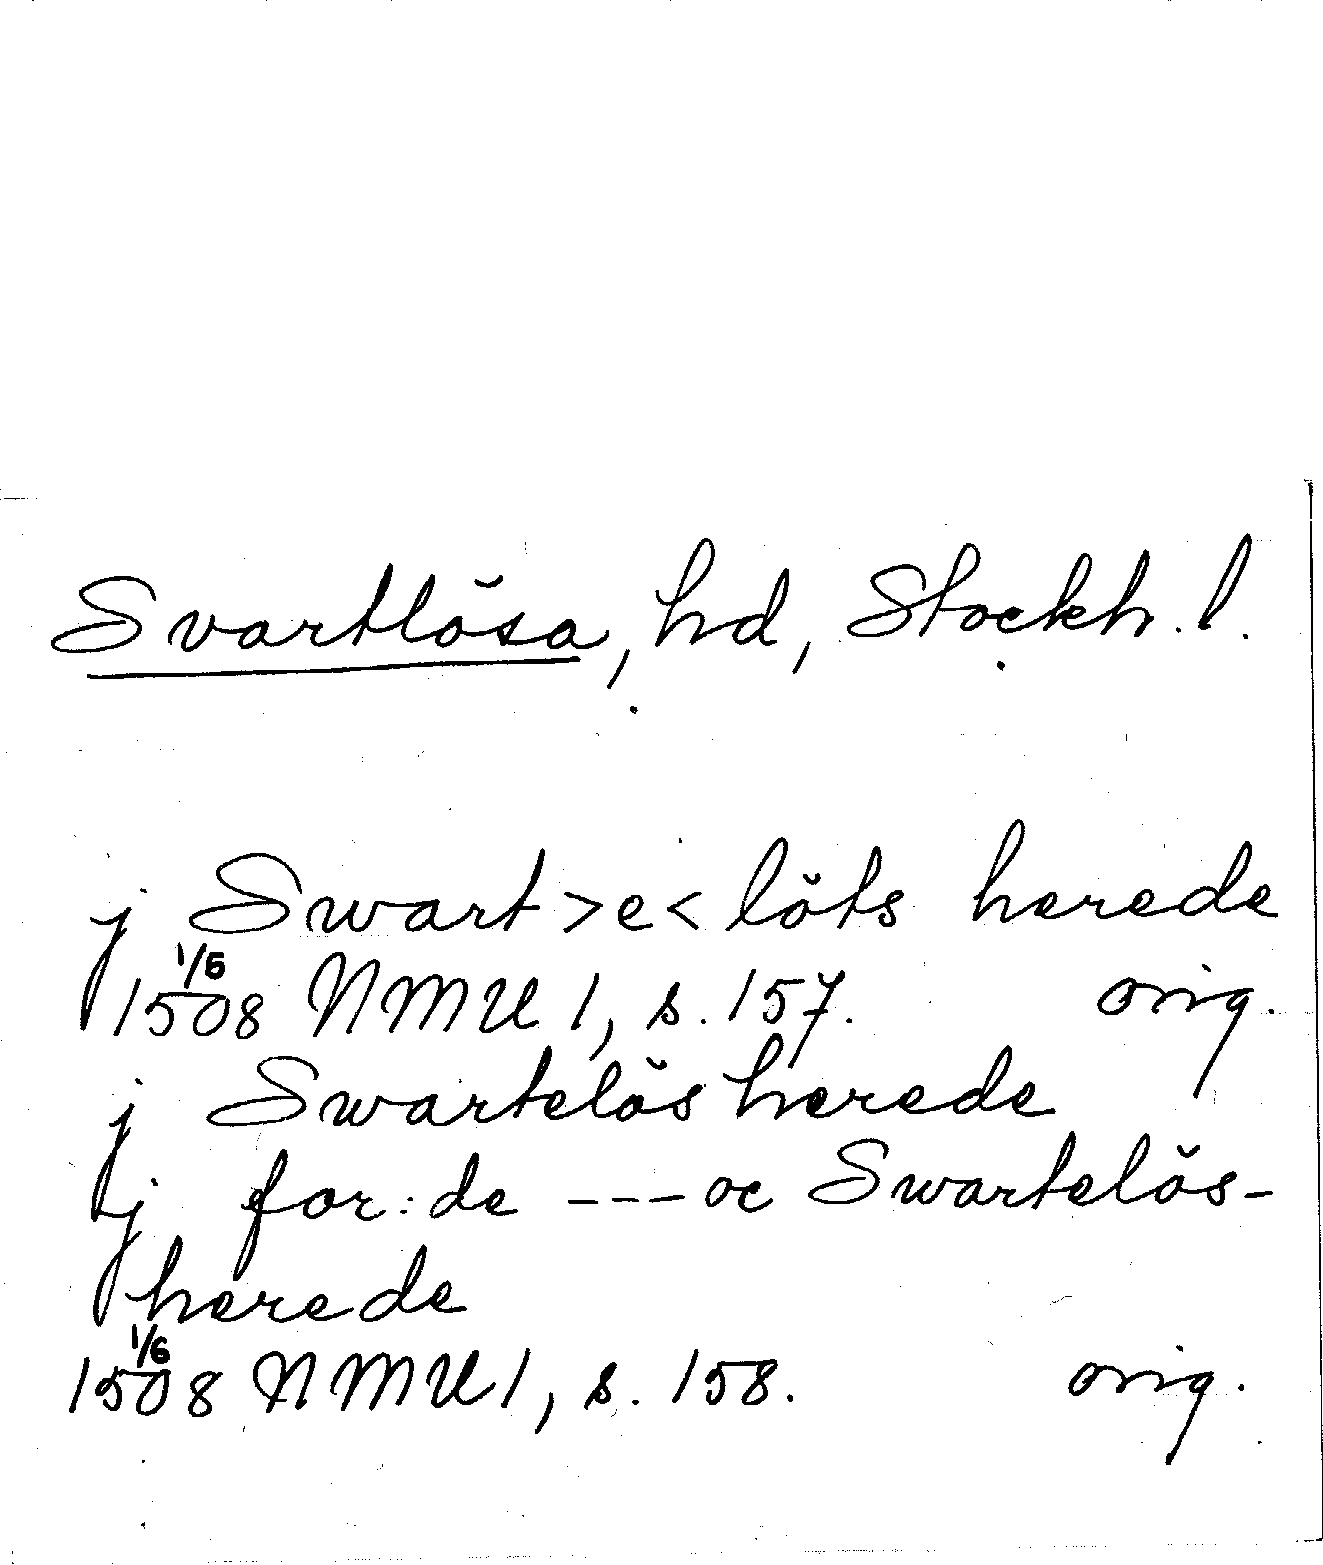 Svartlösa, hd, Stockh. l.
j Swart>e<löts herede
1/6
1508 NMU 1, s. 157. orig.
j Swartelös herede
j for:de --- oc Swartelös-
herede
1/6
1508 NMU 1, s. 158. orig.